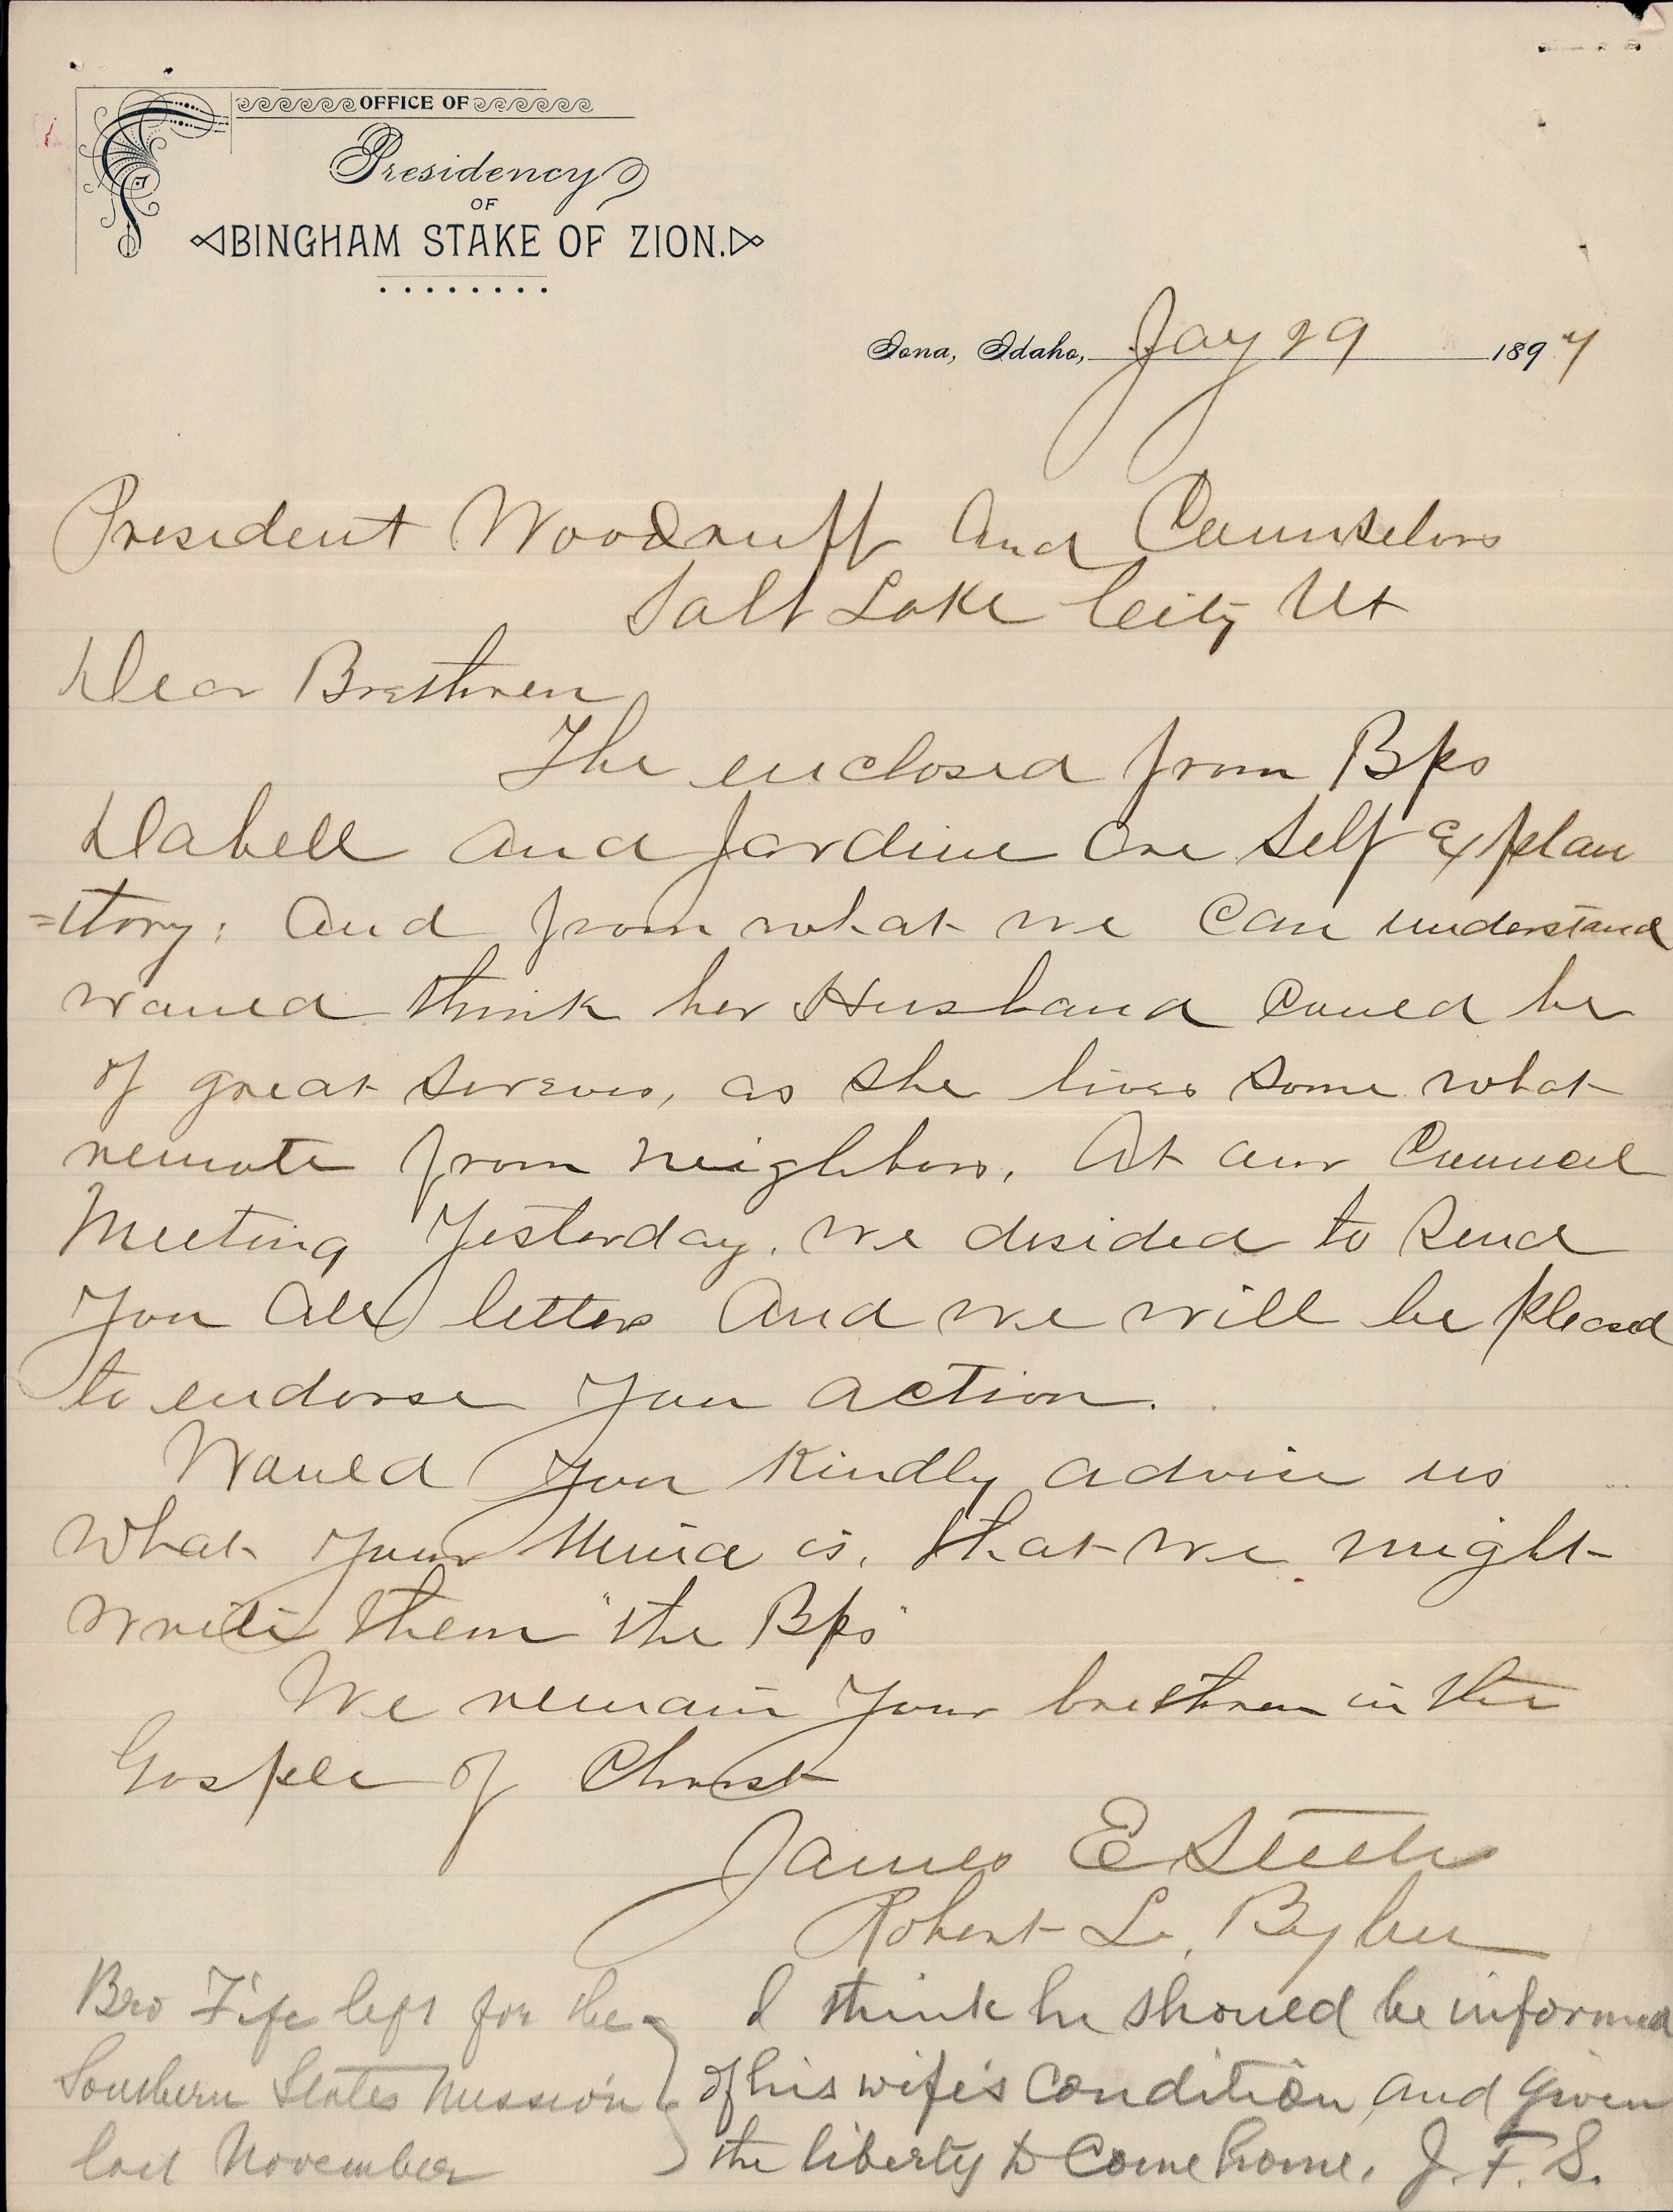 OFFICE OF
Presidency
OF
BINGHAM STAKE OF ZION.
Iona, Idaho, Jay 29 1897
President Woodruff and Counselors
Salt Lake City Ut
Dear Brethren
The enclosed from Bps
Dabell and Jardine are self explan
=itory; and from what we can understand
would think her Husband could be
of great , as she lives some what
remote from neighbors. At our Council
Meeting Yesterday. we desided to send
you all letters and we will be pleased
to endorse your action.
Would you kindly advise us
what your mind is, that we might
write them "the Bps"
We remain your brethren in the
Gospel of Christ
James E Steele
Robert L. Bybee
Bro Fife left for the
Southern States Mission
last November
I think he should be informed
of his wife's condition, and given
the liberty to come home. J. F. S.